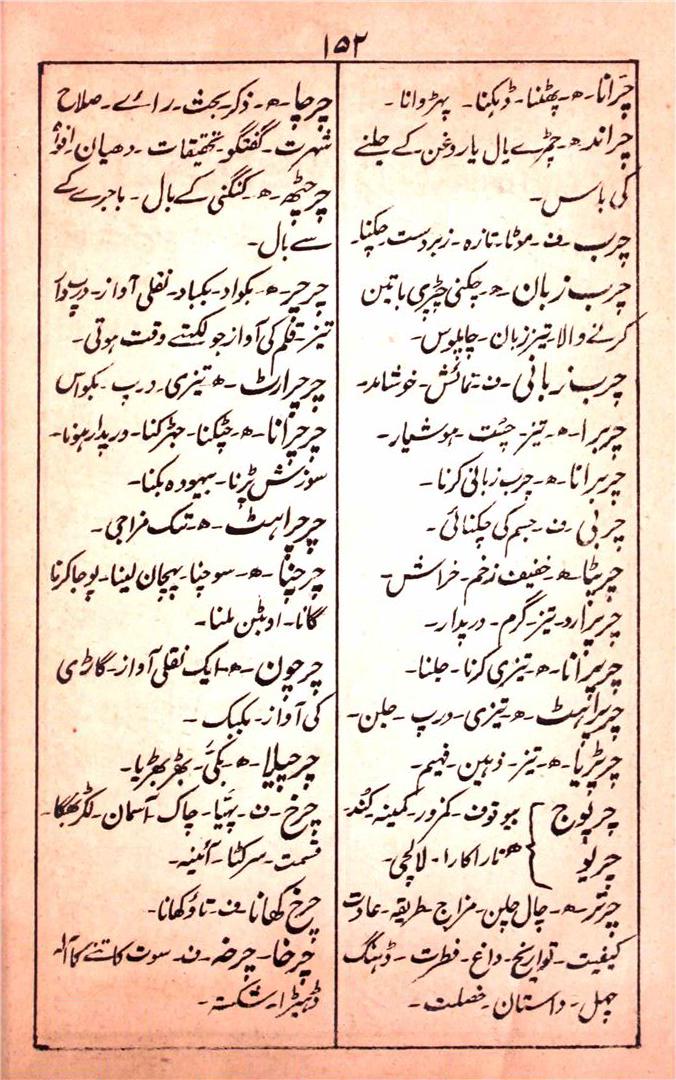 ۱۵۲
چرانا۔ ھ۔ پھٹنا۔ ڈہکنا۔ پہڑوانا۔
چراند ھ۔ چمڑے یال یا روغن کے جلنے
کی باس۔
چرب۔ ف۔ موٹا۔ تازہ۔ زبردست۔ چکنا۔
چرب زبان۔ ھ۔ چکنی چپڑی باتین
کرنے والا۔ تیز زبان۔ چاپلوس۔
چرب زبانی۔ ف۔ نمائش۔ خوشامد۔
چربرا۔ ھ۔ تیز۔ چست۔ ہوشیار۔
چربرانا۔ ھ۔ چرب زبانی کرنا۔
چربی۔ ف۔ جسم کی چکنائی۔
چرپٹا۔ ھ۔ خفیف زخم۔ خراش۔
چرپرا۔ رد۔ تیز۔ گرم۔ درپدار۔
چرپرانا۔ ھ۔ تیزی کرنا۔ جلنا۔
چرپراہٹ۔ ھ۔ تیزی۔ درپ۔ جلن۔
چرپڑیا۔ ھ۔ تیز۔ ذہین۔ فہیم۔
چرپوج بیوقوف۔ کمزور۔ کمینہ۔ کند۔
چرپو ھ ناراکارا۔ لالچی۔
چرتر۔ ھ۔ چال چلن۔ مزاج۔ طریقہ۔ عادت
کیفیت۔ تواریخ۔ داغ۔ فطرت۔ ڈہنگ
چہل۔ داستان۔ خصلت۔
چرچا۔ ھ۔ ذکر۔ بحث۔ رائے۔ صلاح
شہرت۔ گفتگو۔ تحقیقات۔ دھیان۔ افواہ
چرچٹھ۔ ھ۔ کنگنی کے بال۔ باجرے کے
سے بال۔
چرچر۔ ھ۔ بکواد۔ بکباد۔ نقلی آواز۔
تیز۔ قلم کی آواز جو لکہتے وقت ہوتی۔
چرچراہٹ۔ ھ۔ تیزی۔ درپ۔ بکواس
چرچرانا۔ ھ۔ چٹکنا۔ جہڑکنا۔ درپدار ہونا۔
سوزش پڑنا۔ بیہودہ بکنا۔
چرچراہٹ۔ ھ۔ تنک مزاجی۔
چرچنا۔ ھ۔ سوچنا۔ پہچان لینا۔ پوجا کرنا
گانا۔ اوبٹن ملنا۔
چرچون۔ ھ۔ ایک نقلی آواز۔ گاڑی
کی آواز۔ بکبک۔
چرچپلایا۔ ھ۔ بکی۔ بھڑبھڑیا۔
چرخ۔ ف۔ پہیا۔ چاک۔ آسمان۔ لکڑبھگا۔
قسمت۔ سرکٹا۔ آئینہ۔
چرخ کھانا۔ ف۔ تاؤ کھانا۔
چرخا۔ چرخہ۔ ف۔ سوت کاتنے کا آلہ
ڈہڈا۔ شکستہ۔